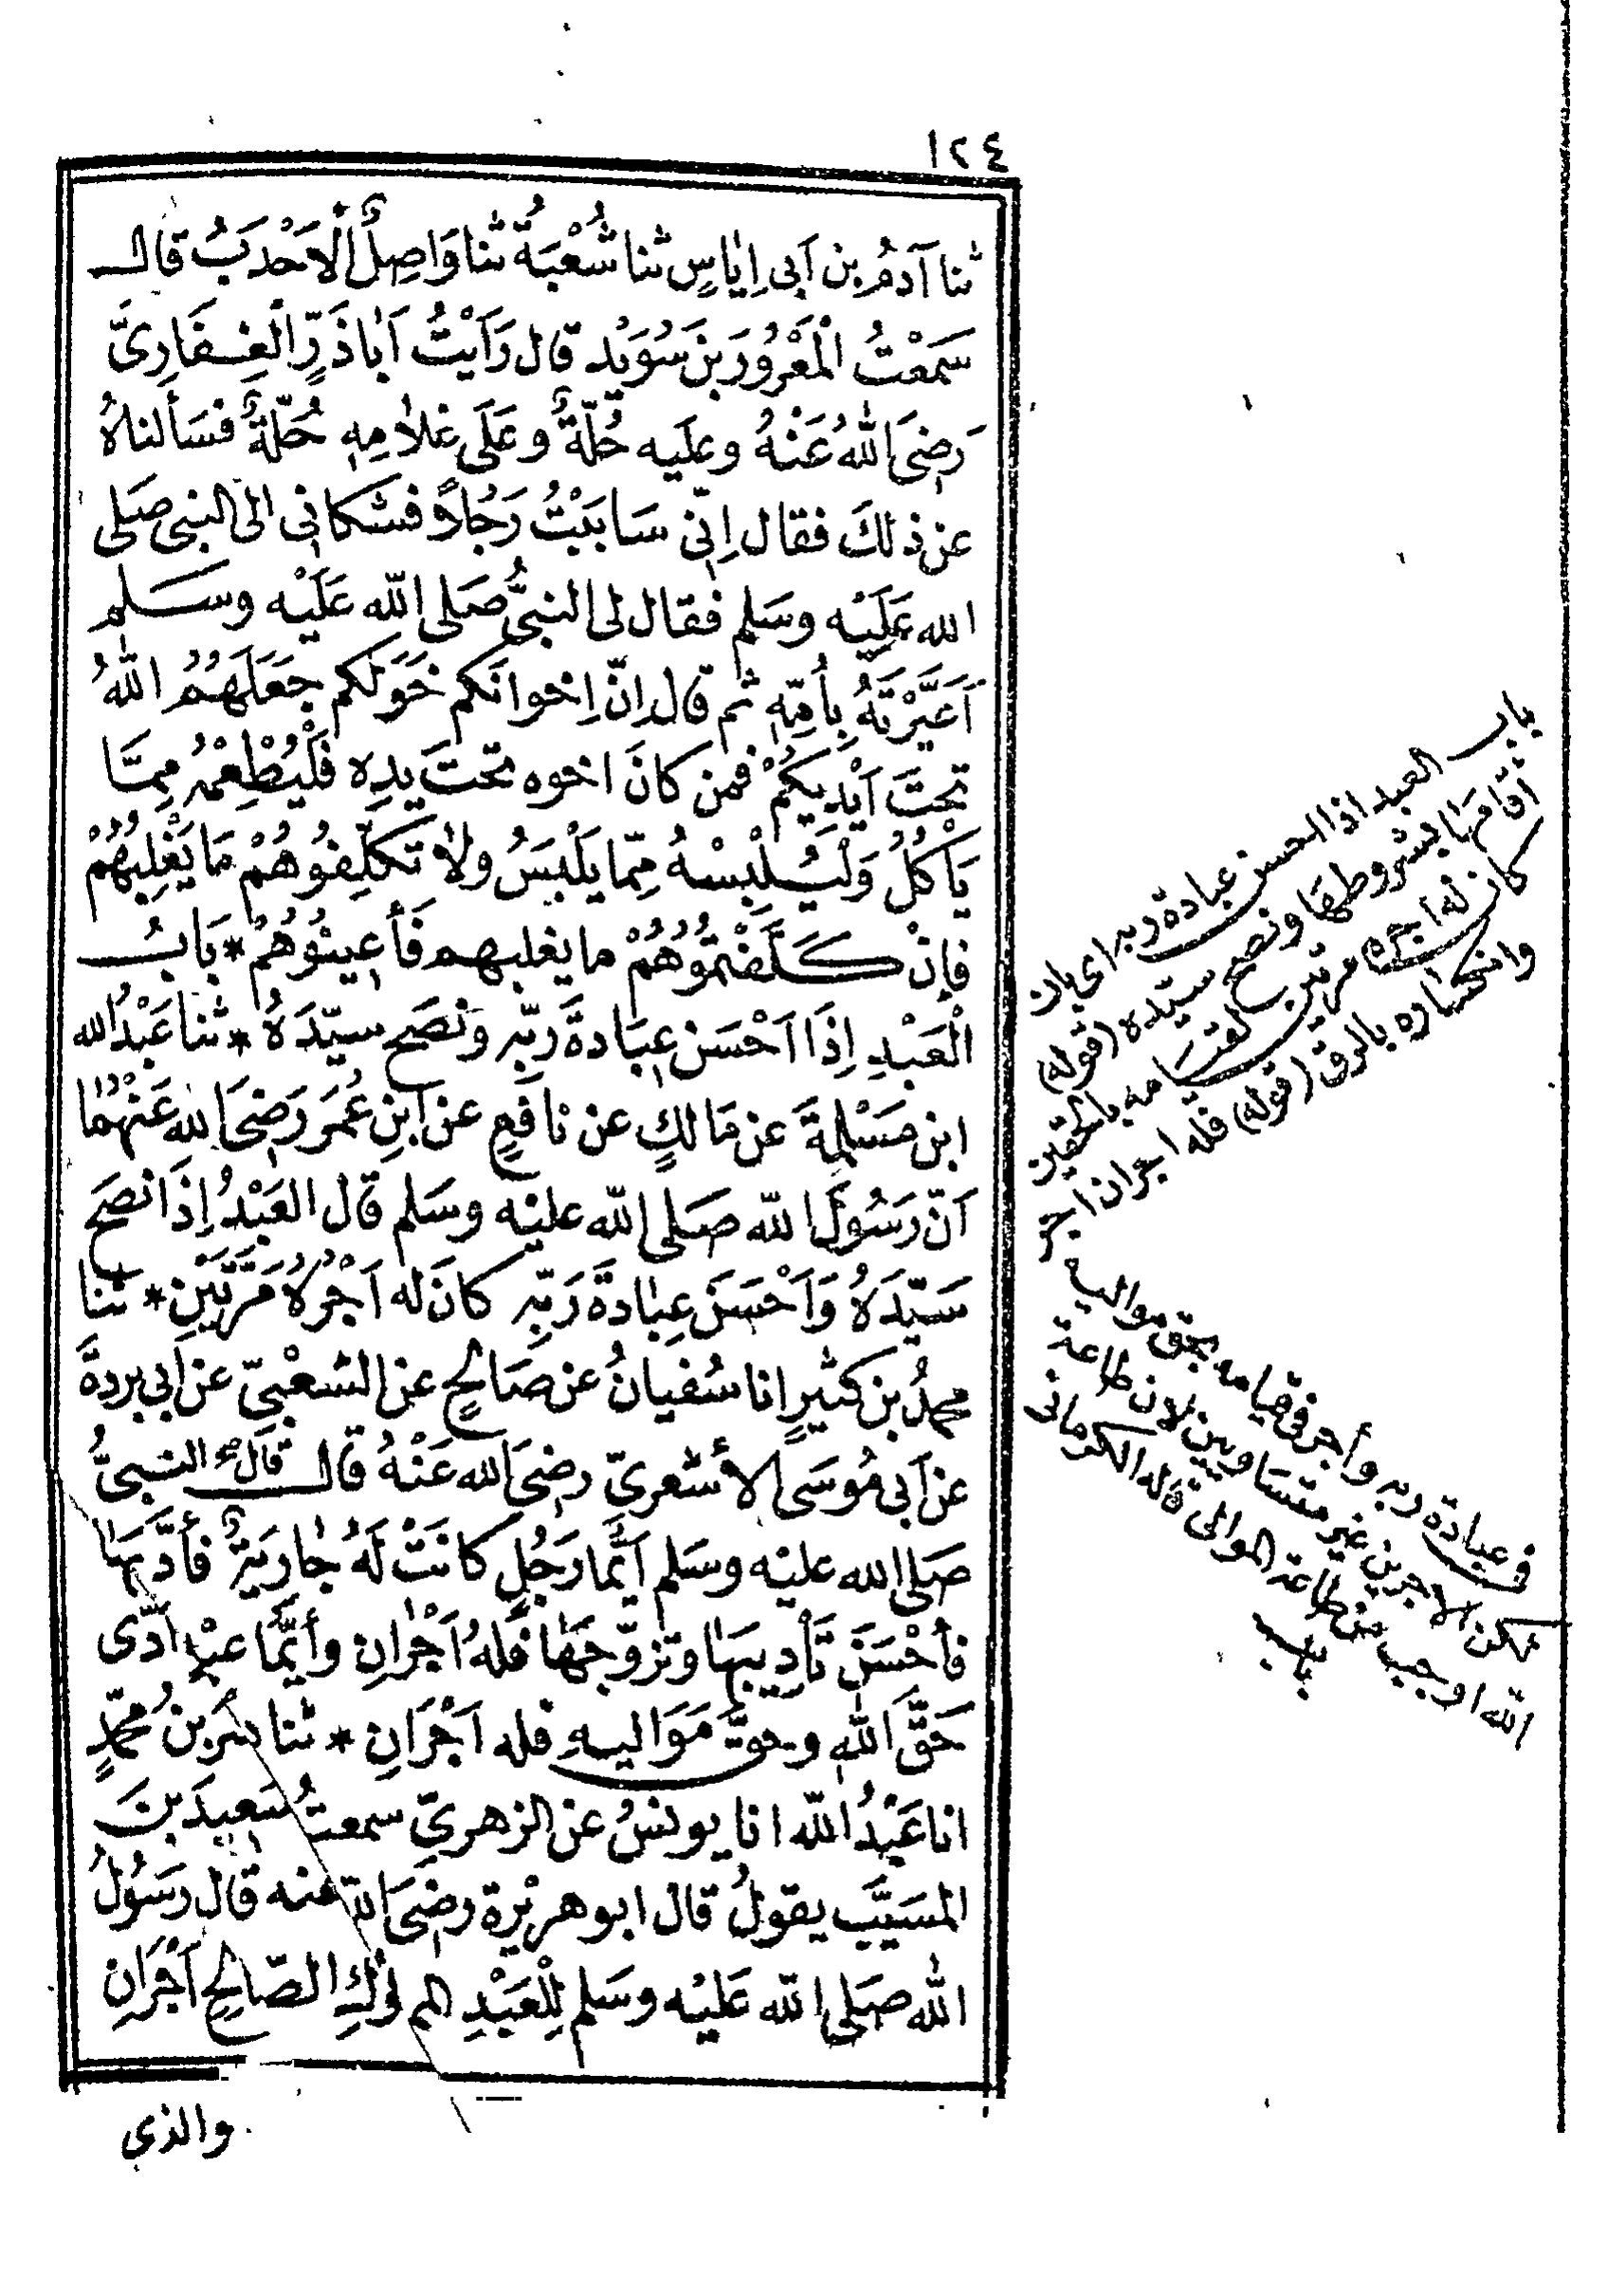 ١٢٤
ثنا آدمُ بن اَبى اِيَاسٍ ثنا شُعْبَةُ ثنا وَاصِلٌ الْاَحْدَبُ قال
سَمِعْتُ الْمَعْرُورَ بنَ سُوَيْدٍ قال رَاَيْتُ اَبَاذَرٍّ الْغِفَارِىَّ
رَضِىَ اللهُ عَنْهُ وعليه حُلَّةٌ وعَلَى غلامِهِ حُلَّةٌ فسَألناهُ
عن ذلكَ فقال اِنّى سَابَبْتُ رَجُلاً فشكانى الى النبى صَلى
الله عَلَيْه وسَلم فقال لى النبىُّ صَلى الله عَلَيْه وسَلم
اَعَيَّرْتَهُ بِأُمِّهِ ثم قال اِنّ اِخوانَكم خَوَلُكم جَعَلَهُمُ اللهُ
تحتَ اَيْدِيكُمْ فمن كانَ اخوه تحتَ يدِهِ فَلْيُطْعِمْهُ مِمَّا
يَأْكُلُ وَلْيُلْبِسْهُ مِمّا يَلْبَسُ ولا تكلِّفُوهُمْ مَا يَغْلِبُهُمْ
فإنْ كَلَّفْتُمُوهُمْ ما يغلبهم فَأَعِينُوُهُمْ * بَابُ
الْعَبْدِ اِذَا اَحْسَنَ عِبَادةَ رَبِّهِ ونَصَحَ سيّدَهُ * ثنا عَبْدُالله
ابن مَسْلَمِةَ عن مَالكٍ عن نافعٍ عن ابنِ عُمَرَ رَضِىَ اللهِ عَنْهُمَا
اَنّ رَسُولَ الله صَلى الله عليْه وسَلم قال العَبْدُ اِذَا نصَحَ
سَيّدَهُ وَاَحْسَنَ عِبَادةَ رَبِّهِ كانَ له اَجْرُهُ مَرَّتَيْنِ * ثنا
محمدُ بن كثيرٍ انا سُفيانُ عن صَالحٍ عن الشعْبىّ عن ابى بردةَ
عن اَبى مُوسَى الأشعرىّ رضىَ الله عَنْهُ قال قال النبىُّ
صَلى الله عليْه وسَلم اَيُّمَا رَجُلٍ كانَتْ لَهُ جَارِيَةٌ فأدَّبهَا
فأحْسَنَ تَأْدِيبَهَا وتزوّجَهَا فَلهُ اَجْرَانِ وأيُّمَا عبْدٍ اَدّى
حَقَّ اللهِ وحقَّ مَوَاليهِ فله اَجْرَانِ * ثنا بشرُ بنُ محمّدٍ
انا عَبْدُ الله انا يونسُ عن الزهرىّ سمعتُ سَعيدَ بْنَ
المسَيَّب يقولُ قال ابو هريْرة رضىَ الله عنه قال رَسُولُ
الله صَلى الله عَلَيْه وسَلم لِلْعَبْدِ المملوُكِ الصّالحِ اَجْرَانِ
والذى
باب العبد اذا احسن عبادة ربه اى بان
أقامها بشروطها ونصح سيّده (قوله)
كان له اجره مرتين لقيامه بالحقين
وانكساره بالرق (قوله) فله اجران اجر
فى عبادة ربه وأجر فى قيامه بحق مواليه
الاجرين غير متساويين لان طاعة
الله اوجب من طاعة الموالى قاله الكرمانى
باب